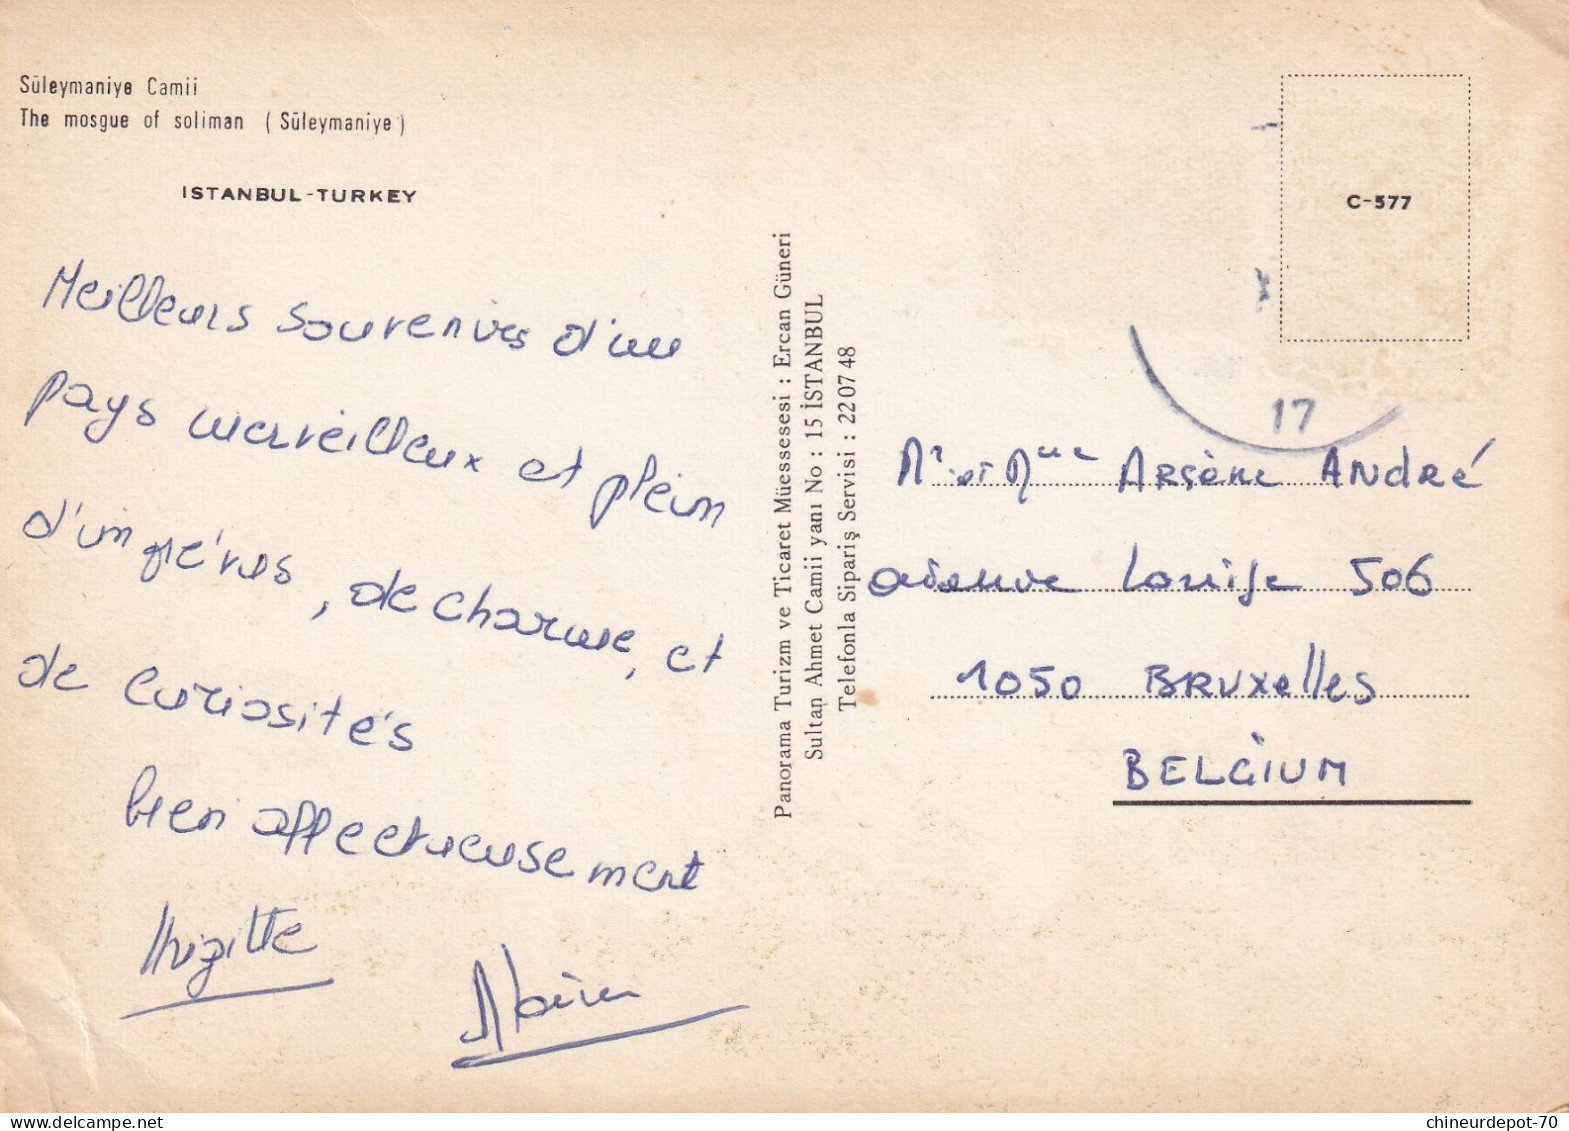 Süleymaniye Camii
The mosgue of soliman (Süleymaniye)
ISTANBUL-TURKEY
Meilleurs souvenirs d'un
pays merveilleux et plein
d'imprévus, de charme, et
de curiosités
bien affectueusement
Brigitte
Alain
Panorama Turizm ve Ticaret Müessesesi : Ercan Güneri
Sultan Ahmet Camii yanı No : 15 İSTANBUL
Telefonla Sipariş Servisi : 22 07 48
C-577
17
Mr et Mme Arsène André
avenue Louise 506
1050 BRUxelles
BELGIUM
chineurdepot-70